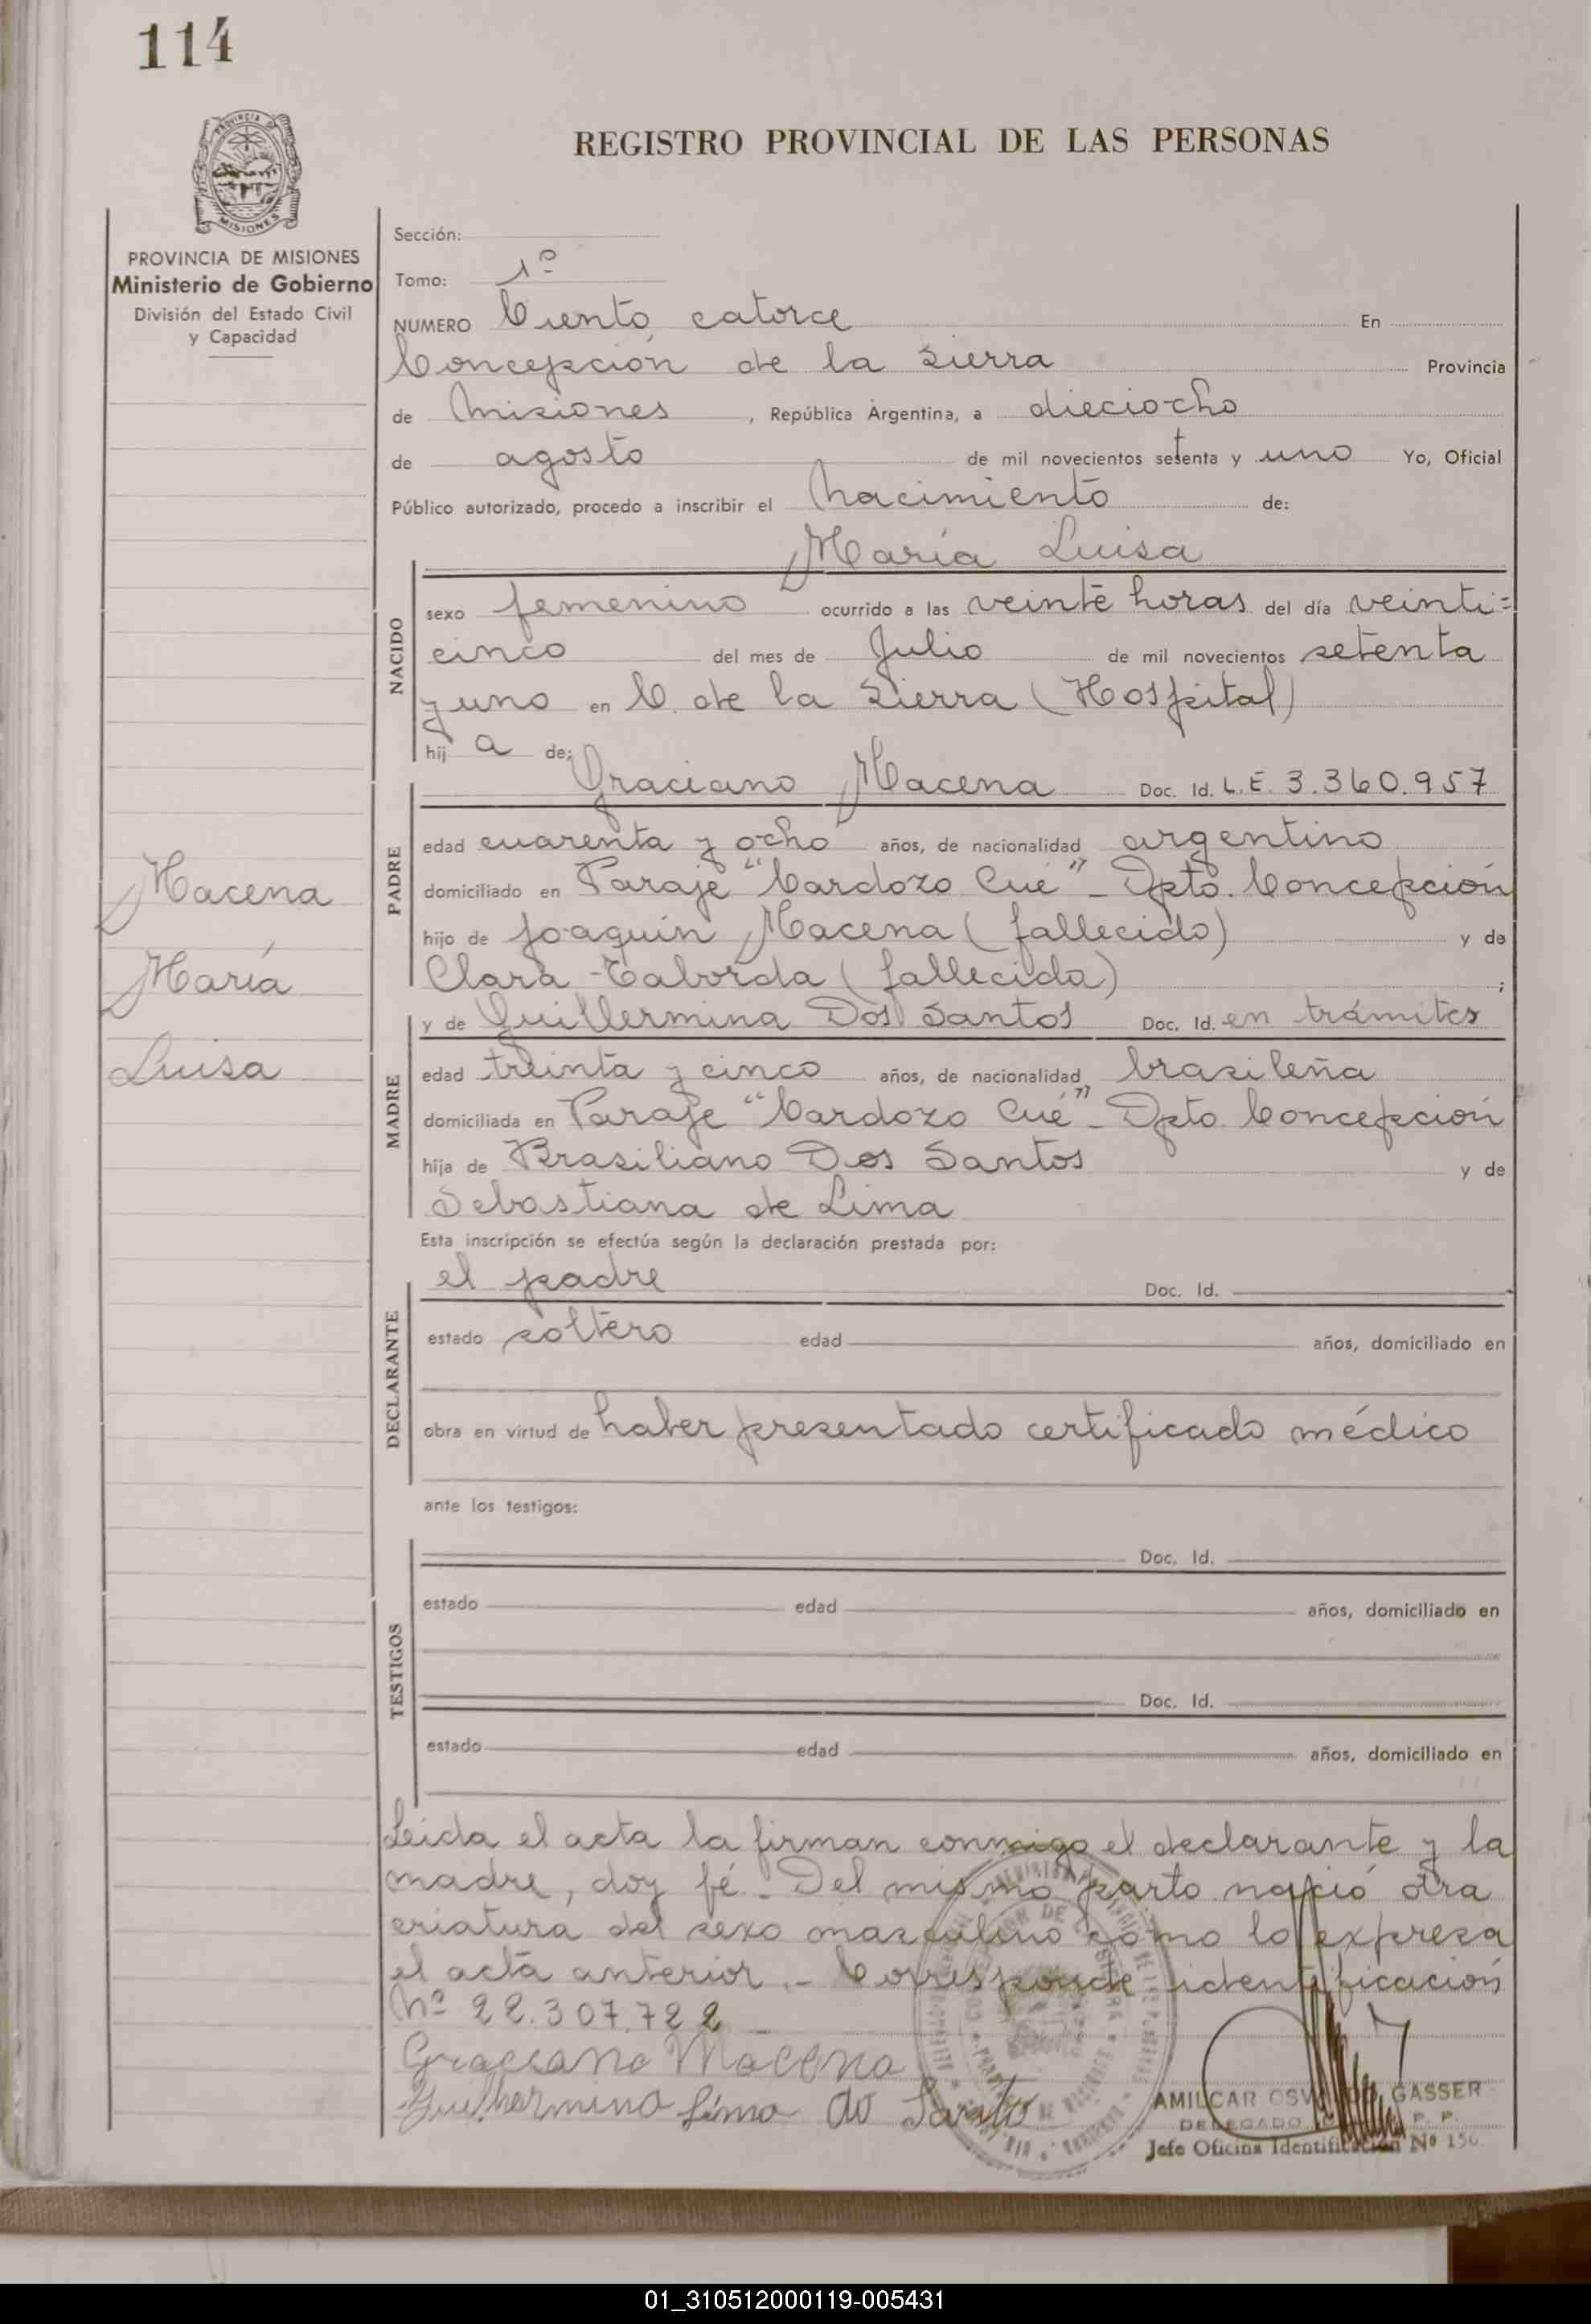 114
REGISTRO PROVINCIAL DE LAS PERSONAS
PROVINCIA DE MISIONES
Ministerio de Gobierno
División del Estado Civil
y Capacidad
Sección:
Tomo: 1º
NUMERO Ciento catorce En
Concepción de la Sierra Provincia
de Misiones, República Argentina, a dieciocho
de agosto de mil novecientos setenta y uno Yo, Oficial
Público autorizado, procedo a inscribir el Nacimiento de:
María Luisa
NACIDO
sexo femenino ocurrido a las veinte horas del día veinti=
cinco del mes de Julio de mil novecientos setenta
y uno en C. de la Sierra (Hospital)
hij a de:
Graciano Macena Doc. Id. L.E. 3.360.957
PADRE
edad cuarenta y ocho años, de nacionalidad argentino
domiciliado en Paraje "Cardozo Cué" - Dpto. Concepción
hijo de Joaquín Macena (fallecido) y de
Clara Taborda (fallecida);
y de Guillermina Dos Santos Doc. Id. en trámites
MADRE
edad treinta y cinco años, de nacionalidad brasileña
domiciliada en Paraje "Cardozo Cué" - Dpto. Concepción
hija de Brasiliano Dos Santos y de
Sebastiana de Lima
Esta inscripción se efectúa según la declaración prestada por:
el padre Doc. Id.
DECLARANTE
estado soltero edad años, domiciliado en
obra en virtud de haber presentado certificado médico
ante los testigos:
Doc. Id.
TESTIGOS
estado edad años, domiciliado en
Doc. Id.
estado edad años, domiciliado en
Leida el acta la firman conmigo el declarante y la
madre, doy fé. Del mismo parto nació otra
criatura del sexo masculino como lo expresa
el acta anterior.- Corresponde identificación
Nº 22.307.722
Graciano Macena
Guilhermina Lima do Santo
AMILCAR GASSER
DELEGADO P. P.
Jefe Oficina Identificación Nº
Macena
María
Luisa
01_310512000119-005431